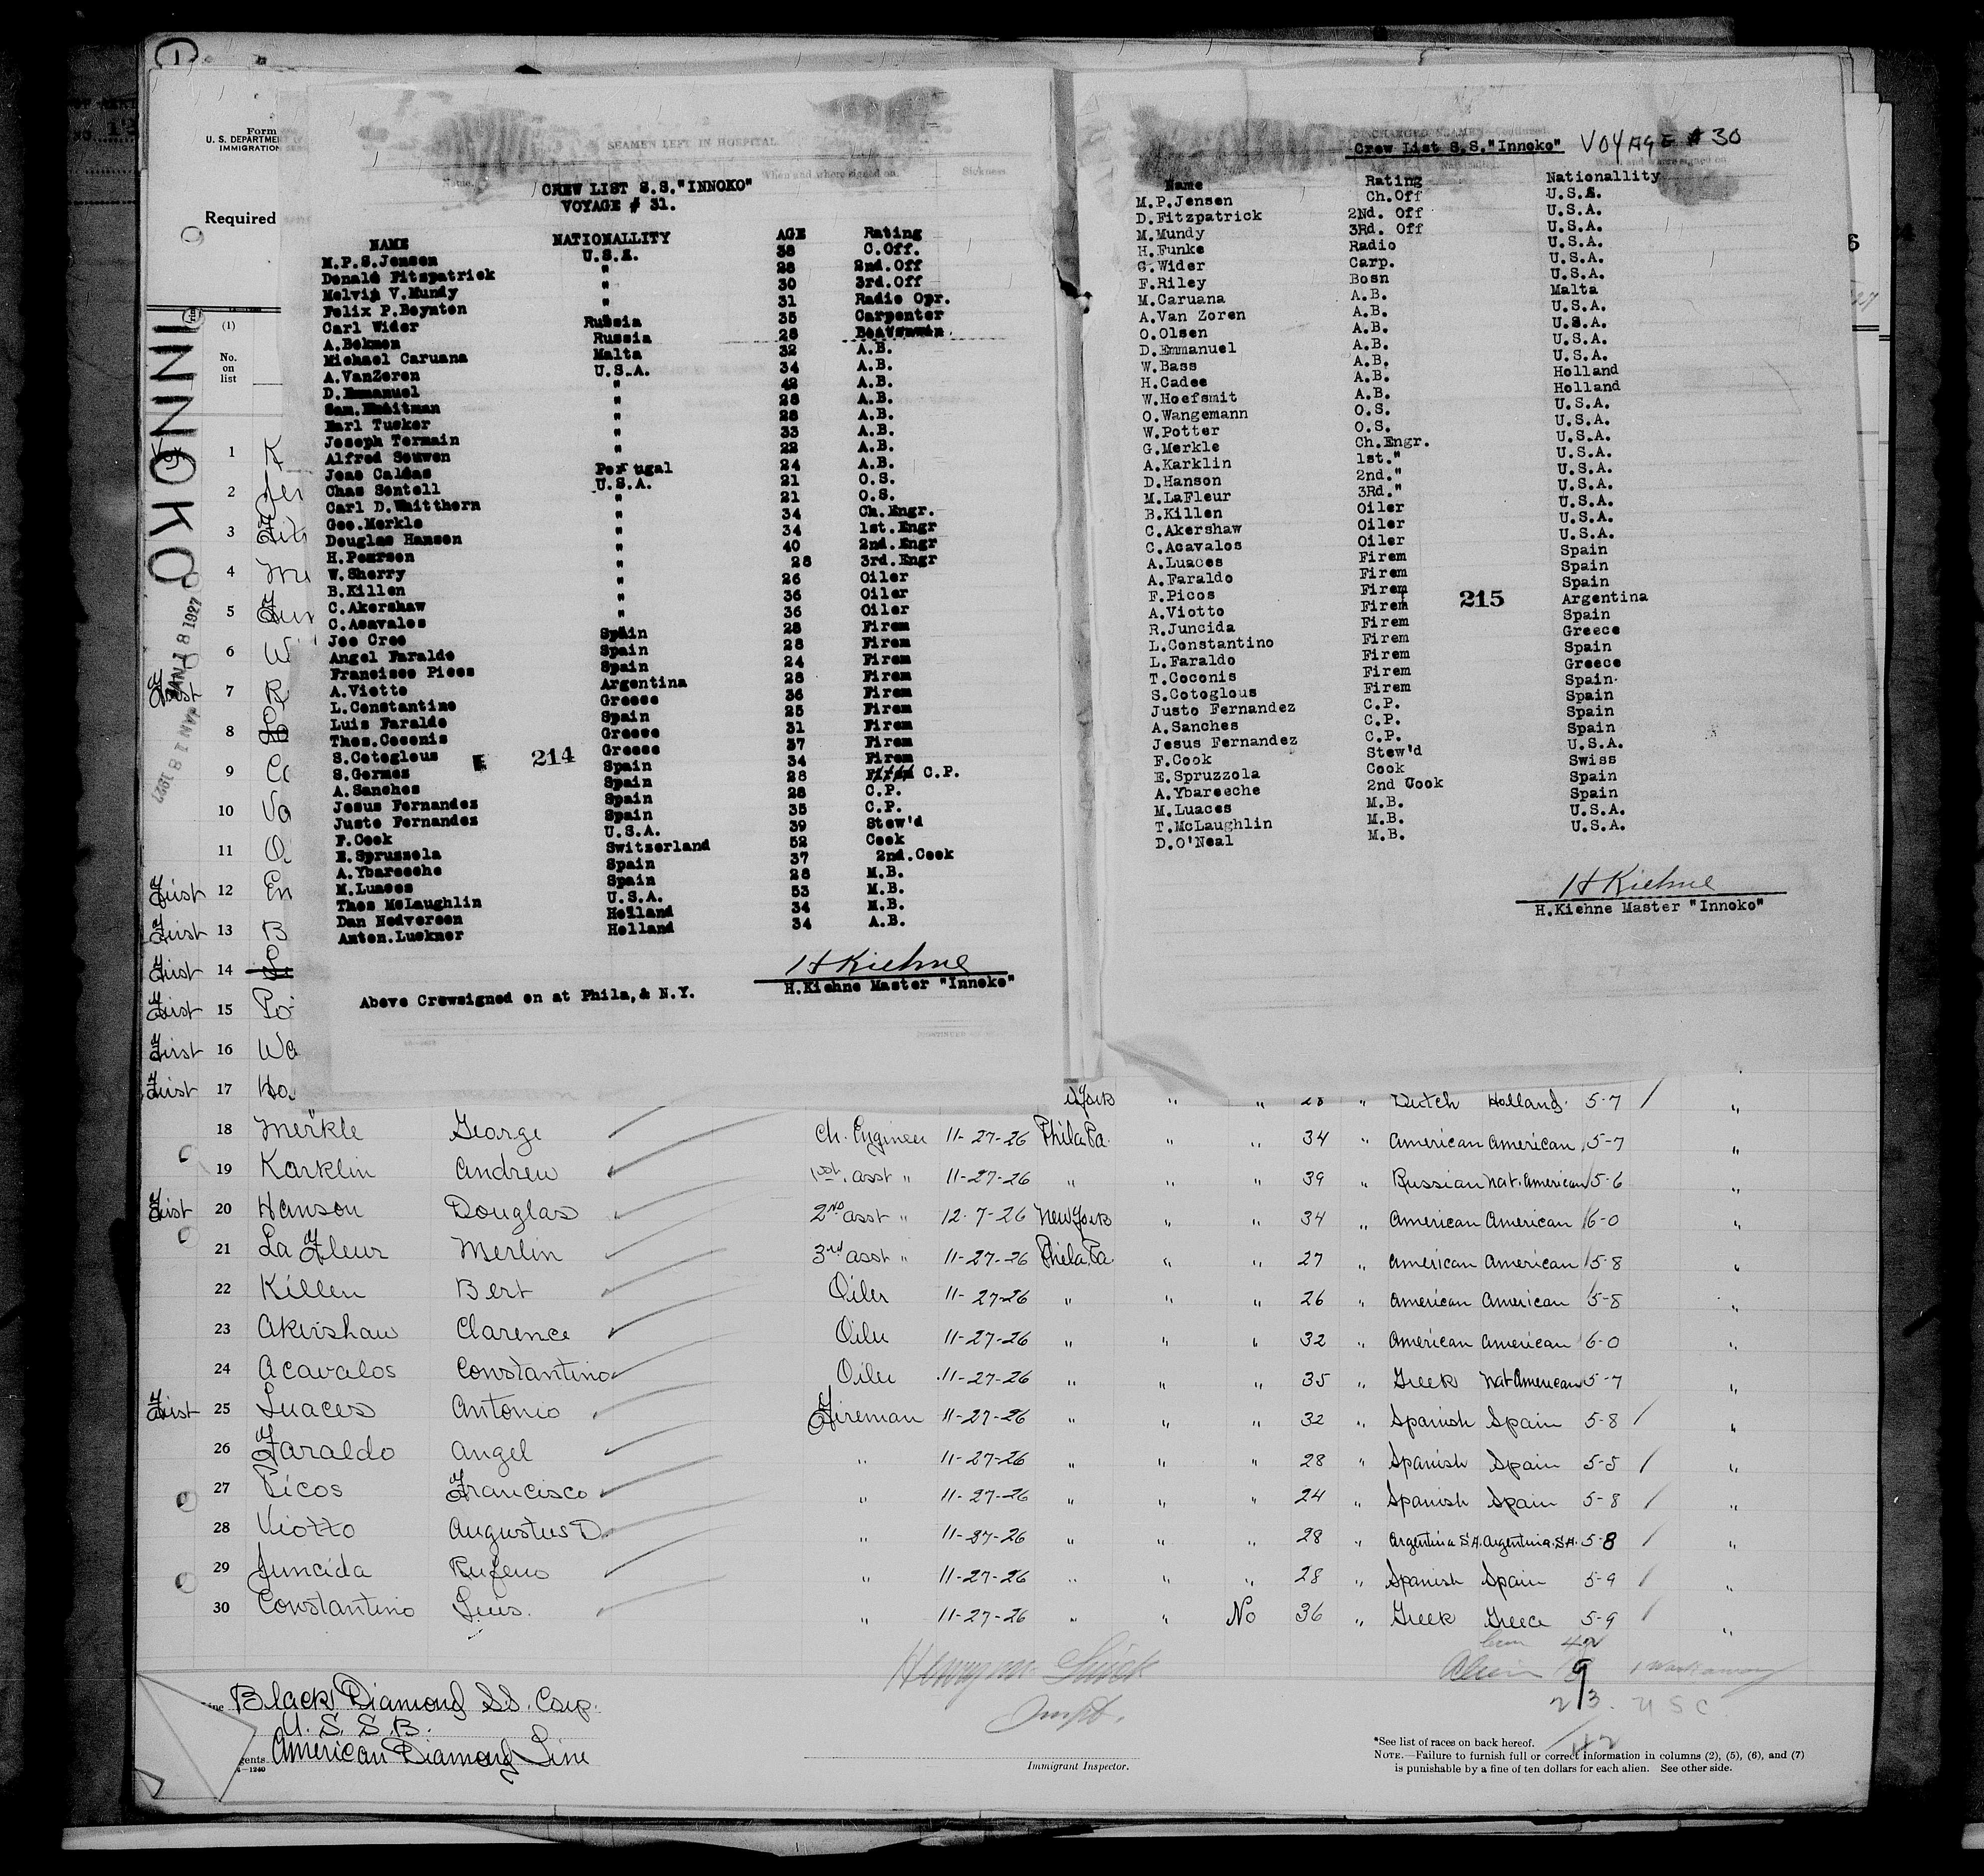 Form
U. S. DEPARTMEN
IMMIGRATION
Required
INNOKO
JAN 18 1927
JAN 18 1927
(1)
No.
on
list
SEAMEN LEFT IN HOSPITAL
Name. When and where signed on. Sickness.
CREW LIST S.S."INNOKO"
VOYAGE # 31.
NAME NATIONALLITY AGE Rating
M.P.S.Jensen U.S.A. 38 C.Off.
Donald Fitzpatrick " 28 2nd.Off
Melvin V.Mundy " 30 3rd.Off
Felix P.Boynton " 31 Radio Opr.
Carl Wider Russia 35 Carpenter
A.Bekman Russia 28 Boatswain.
Michael Caruana Malta 32 A.B.
A.VanZoren U.S.A. 34 A.B.
D.Emmanuel " 42 A.B.
Sam. " 28 A.B.
Earl Tusker " 28 A.B.
Joseph Termain " 33 A.B.
Alfred Souwen " 22 A.B.
Joao Caldas Portugal 24 A.B.
Chas Sentell U.S.A. 21 O.S.
Carl D.Whitthorn " 21 O.S.
Geo.Merkle " 34 Ch.Engr.
Douglas Hanson " 34 1st.Engr
H.Pearson " 40 2nd.Engr
W.Sherry " 28 3rd.Engr
B.Killen " 26 Oiler
C.Akershaw " 36 Oiler
C.Acavalos " 36 Oiler
Joe Cree Spain 28 Firem
Angel Faraldo Spain 28 Firem
Francisco Picos Spain 24 Firem
A.Viotto Argentina 28 Firem
L.Constantino Greece 36 Firem
Luis Faraldo Spain 25 Firem
Thos.Coconis Greece 31 Firem
S.Cotoglous Greece 37 Firem
S.Gormes Spain 34 Firem
A.Sanches Spain 28 C.P.
Jesus Fernandez Spain 28 C.P.
Justo Fernandez Spain 35 C.P.
F.Cook U.S.A. 39 Stew'd
E.Spruzzola Switzerland 52 Cook
A.Ybareeche Spain 37 2nd.Cook
M.Luaces Spain 28 M.B.
Thos McLaughlin U.S.A. 53 M.B.
Dan Nedvereen Holland 34 M.B.
Anton.Luckner Holland 34 A.B.
214
H Kiehne
H.Kiehne Master "Innoko"
Above Crewsigned on at Phila,& N.Y.
Crew List S.S."Innoko" VOYAGE # 30
Name Rating Nationallity
M.P.Jensen Ch.Off U.S.A.
D.Fitzpatrick 2Nd. Off U.S.A.
M.Mundy 3Rd. Off U.S.A.
H.Funke Radio U.S.A.
C.Wider Carp. U.S.A.
F.Riley Bosn U.S.A.
M.Caruana A.B. Malta
A.Van Zoren A.B. U.S.A.
O.Olsen A.B. U.S.A.
D.Emmanuel A.B. U.S.A.
W.Bass A.B. U.S.A.
H.Cadee A.B. Holland
W.Hoefsmit A.B. Holland
O.Wangemann O.S. U.S.A.
W.Potter O.S. U.S.A.
G.Merkle Ch.Engr. U.S.A.
A.Karklin 1st." U.S.A.
D.Hanson 2nd." U.S.A.
M.LaFleur 3Rd." U.S.A.
B.Killen Oiler U.S.A.
C.Akershaw Oiler U.S.A.
C.Acavalos Oiler U.S.A.
A.Luaces Firem Spain
A.Faraldo Firem Spain
F.Picos Firem Spain
A.Viotto Firem Argentina
R.Juncida Firem Spain
L.Constantino Firem Greece
L.Faraldo Firem Spain
T.Coconis Firem Greece
S.Cotoglous Firem Spain
Justo Fernandez C.P. Spain
A.Sanches C.P. Spain
Jesus Fernandez C.P. Spain
F.Cook Stew'd U.S.A.
E.Spruzzola Cook Swiss
A.Ybareeche 2nd Cook Spain
M.Luaces M.B. Spain
T.McLaughlin M.B. U.S.A.
D.O'Neal M.B. U.S.A.
215
H Kiehne
H.Kiehne Master "Innoko"
1 K
2 Jen
3 Fitz
4 Mu
5 Fun
6 W
First 7 R
8
9 Ca
10 Va
11 O
First 12 Em
First 13 B
First 14
First 15 Po
First 16 Wa
First 17 Ho York " " 28 " Dutch Holland 5-7 / "
18 Merkle George Ch. Engineer 11-27-26 Phila Pa. " " 34 " American American 5-7 "
19 Karklin Andrew 1st. asst " 11-27-26 " " " 39 " Russian Nat. American 5-6 "
First 20 Hanson Douglas 2nd asst " 12-7-26 New York " " 34 " American American 6-0 "
21 La Fleur Merlin 3rd asst " 11-27-26 Phila. Pa " " 27 " American American 5-8 "
22 Killen Bert Oiler 11-27-26 " " " 26 " American American 5-8 "
23 Akershaw Clarence Oiler 11-27-26 " " " 32 " American American 6-0 "
24 Acavalos Constantino Oiler 11-27-26 " " " 35 " Greek Nat American 5-7 "
First 25 Luaces Antonio Fireman 11-27-26 " " " 32 " Spanish Spain 5-8 / "
26 Faraldo Angel " 11-27-26 " " " 28 " Spanish Spain 5-5 / "
27 Picos Francisco " 11-27-26 " " " 24 " Spanish Spain 5-8 / "
28 Viotto Augustus D. " 11-27-26 " " " 28 " Argentina S.A. Argentina S.A. 5-8 / "
29 Juncida Rufeno " 11-27-26 " " " 28 " Spanish Spain 5-9 / "
30 Constantino Luis. " 11-27-26 " " No 36 " Greek Greece 5-9 / "
Line Black Diamond SS. Corp.
U. S. S. B.
Agents American Diamond Line
Insp.
Immigrant Inspector.
1 Workaway
U S C.
*See list of races on back hereof.
NOTE.—Failure to furnish full or correct information in columns (2), (5), (6), and (7)
is punishable by a fine of ten dollars for each alien. See other side.